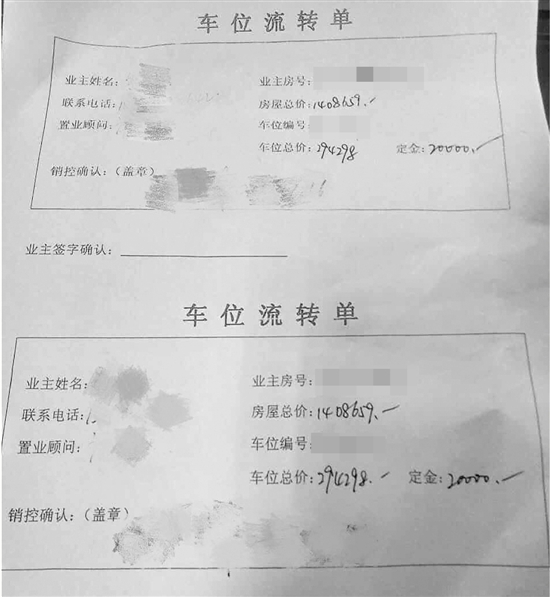 车位流转单
业主姓名: 业主房号:
联系电话: 房屋总价:1408659.-
置业顾问: 车位编号:
车位总价:294298. 定金:20000.-
销控确认:(盖章)
业主签字确认:
车位流转单
业主姓名: 业主房号:
联系电话: 房屋总价:1408659.-
置业顾问: 车位编号:
车位总价:294298.- 定金:20000.-
销控确认:(盖章)